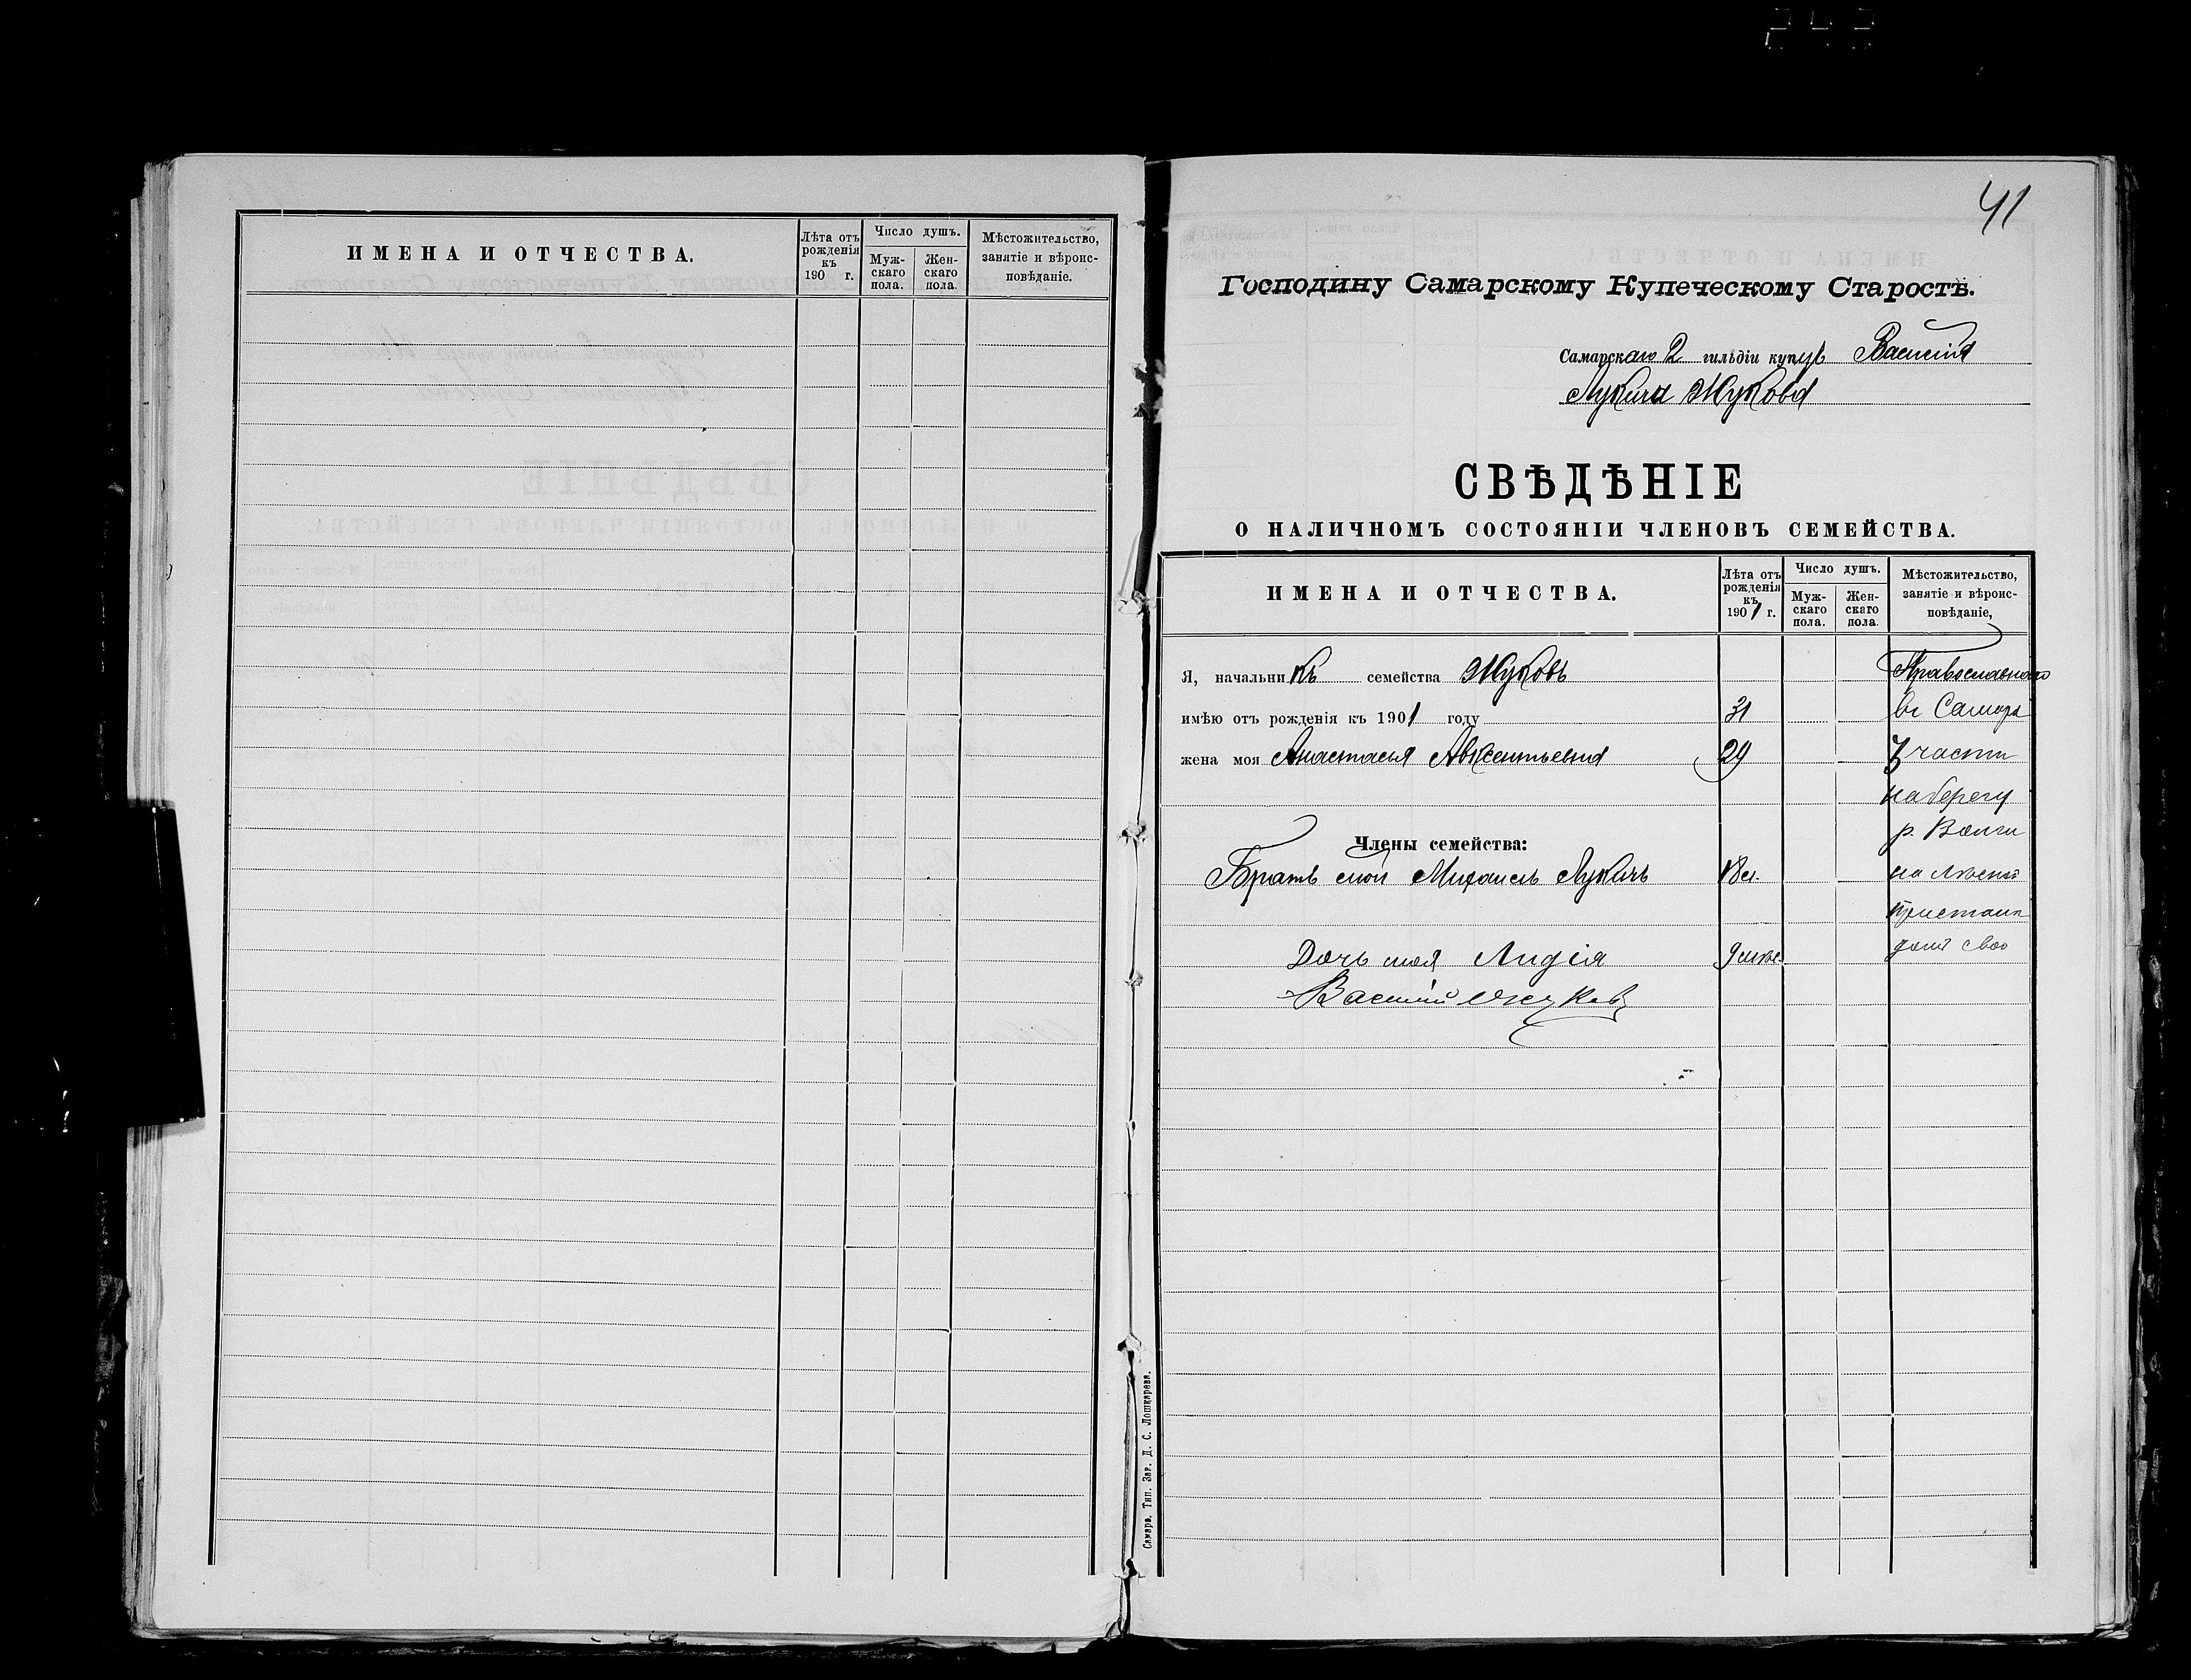 ИМЕНА И ОТЧЕСТВА.
Лѣта отъ рожденія къ 190 г.
Число душъ.
Мужскаго пола.
Женскаго пола.
Мѣстожительство, занятіе и вѣроисповѣданіе.
41
Господину Самарскому Купеческому Старостѣ.
Самарскаго 2 гильдіи купца Василія
Лукича Жукова
СВѢДѢНІЕ
О НАЛИЧНОМЪ СОСТОЯНІИ ЧЛЕНОВЪ СЕМЕЙСТВА.
ИМЕНА И ОТЧЕСТВА.
Лѣта отъ рожденія къ 1901 г.
Число душъ.
Мужскаго пола.
Женскаго пола.
Мѣстожительство, занятіе и вѣроисповѣданіе,
Я, начальникъ семейства Жуковъ
Православнаго
имѣю отъ рожденія къ 1901 году 31
въ Самарѣ
жена моя Анастасія Авксентьевна 29
части
на берегу
р. Волги
Члены семейства:
Братъ мой Михаилъ Лукичъ 18 л.
на
пристани
Дочь моя Лидія 9 мѣс.
домъ свой
Василій Жуковъ
Самара. Тип. Зав. Д. С. Лошкарева.